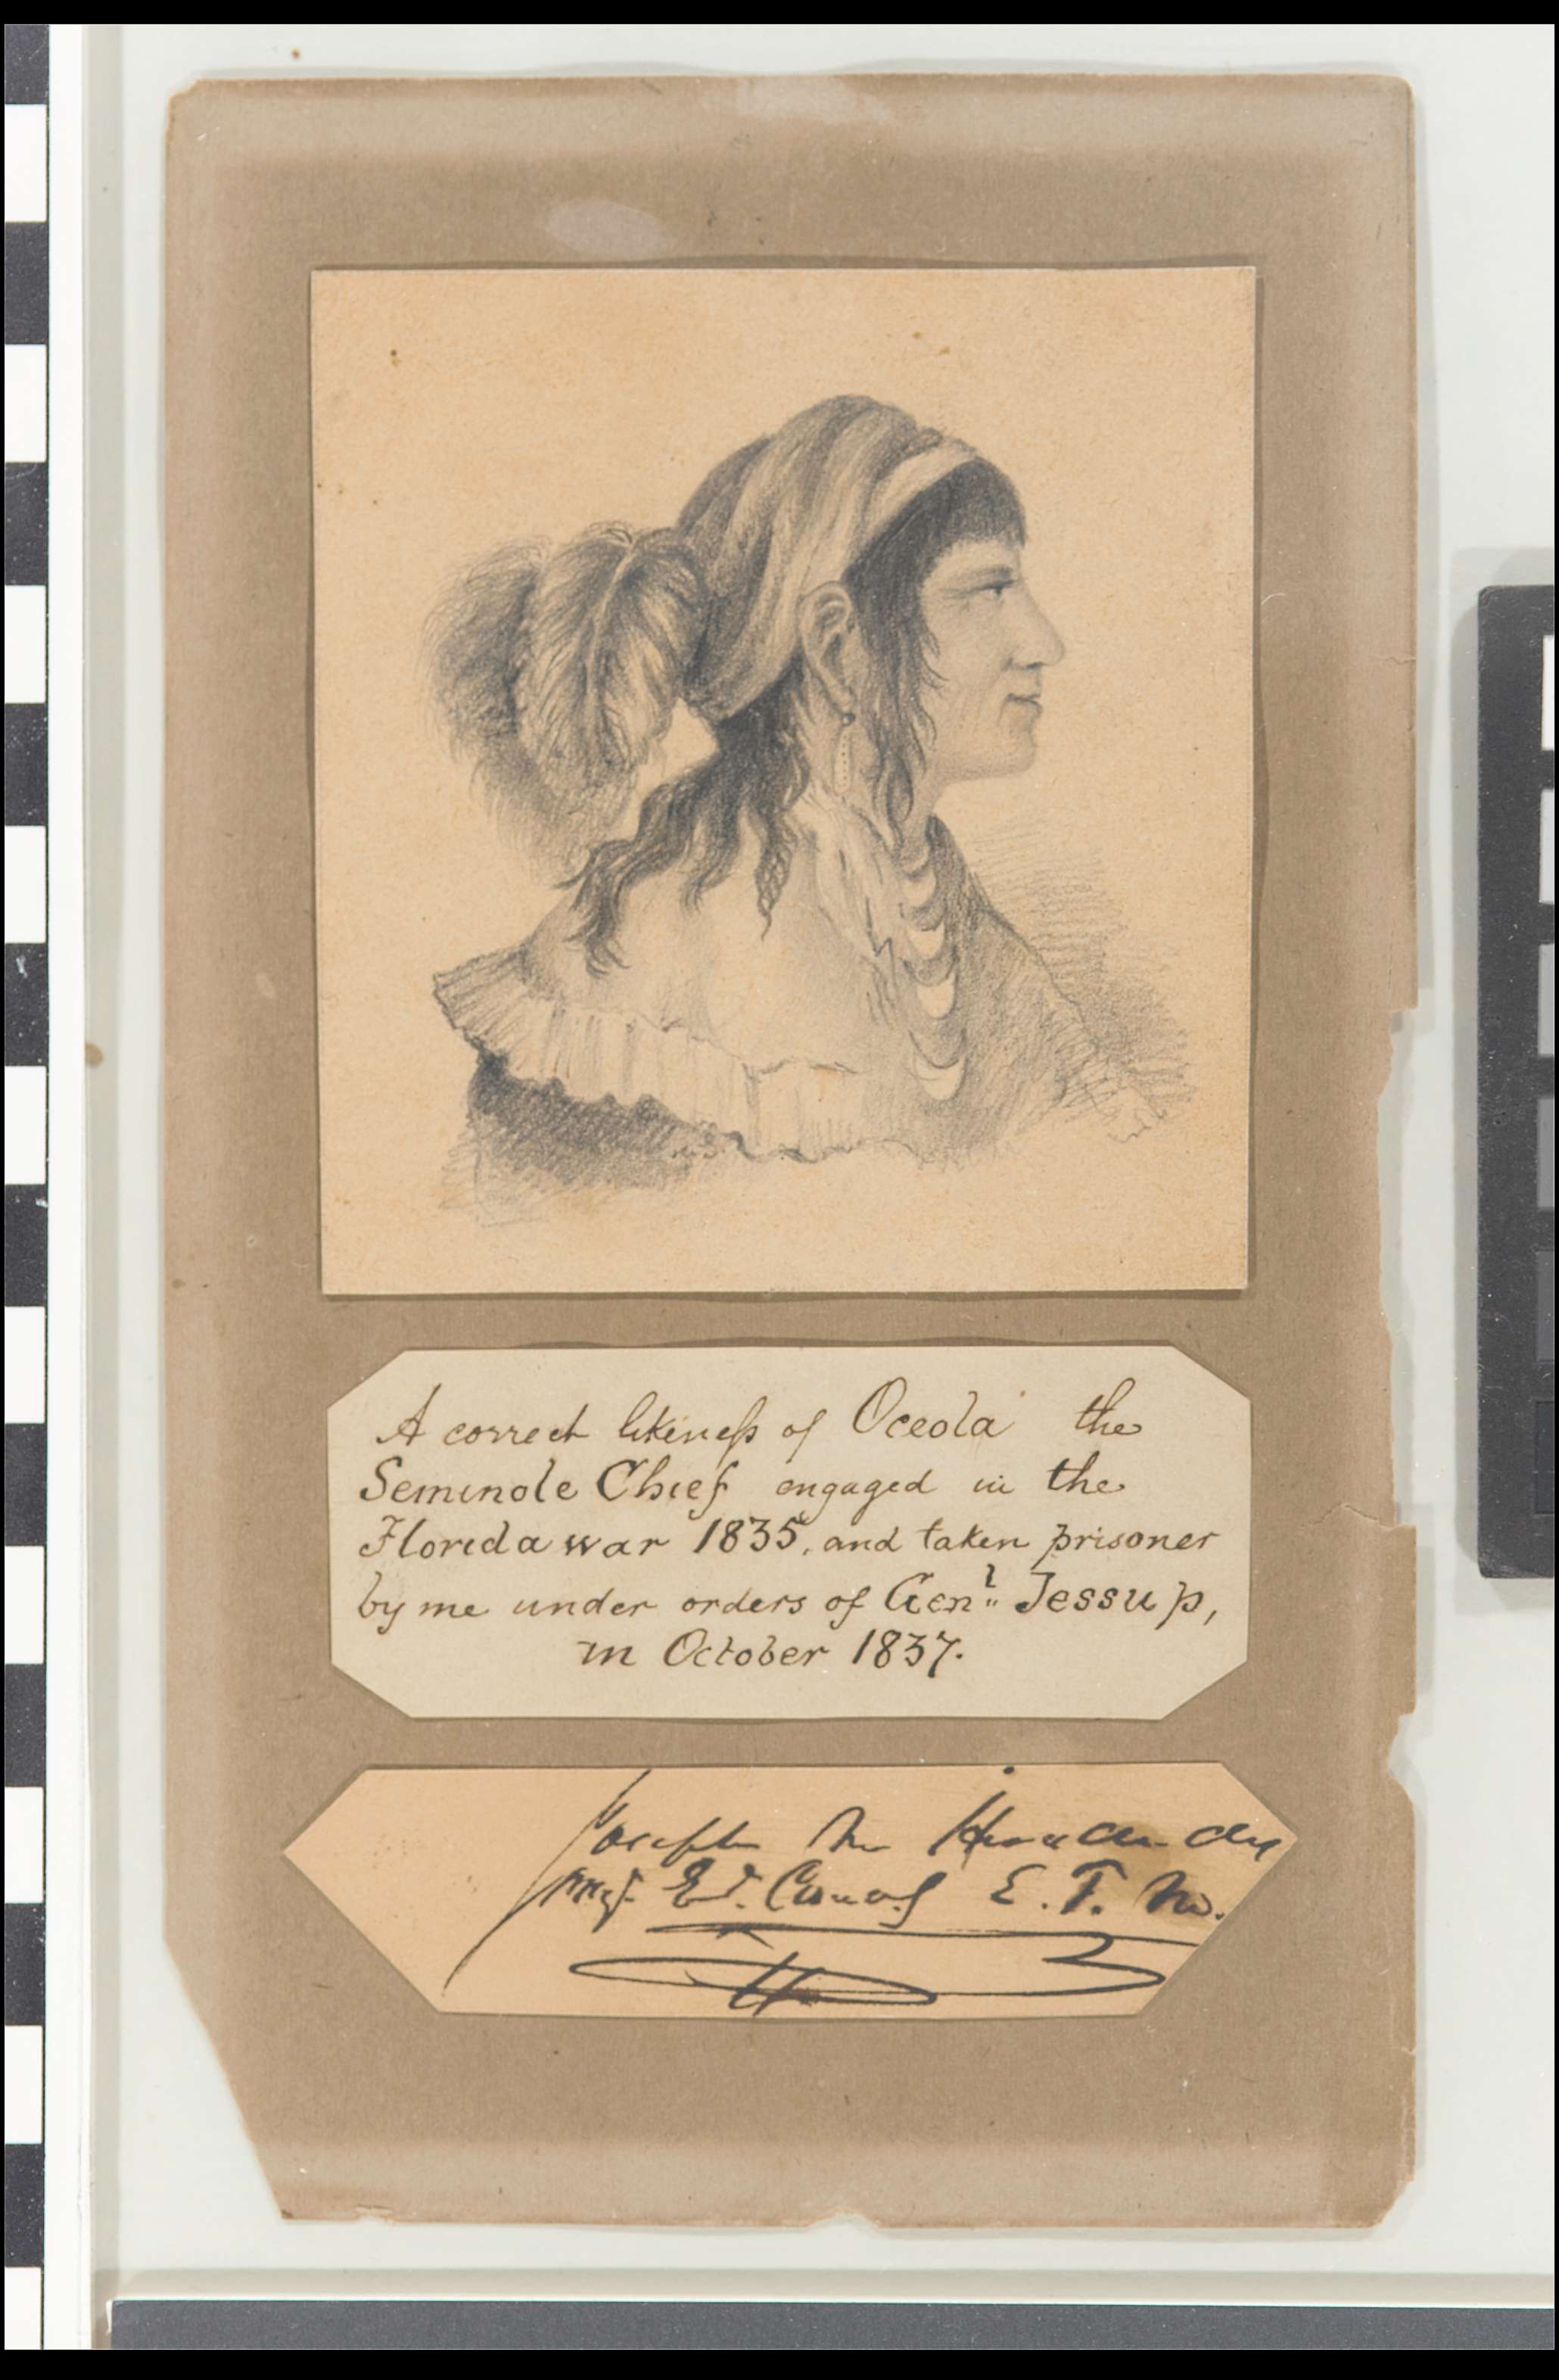 A correct likeness of Oceola the
Seminole Chief engaged in the
Florida war 1835, and taken prisoner
by me under orders of Genˡ Jessup,
in October 1837.
Joseph M Hernandez
E. F. M.